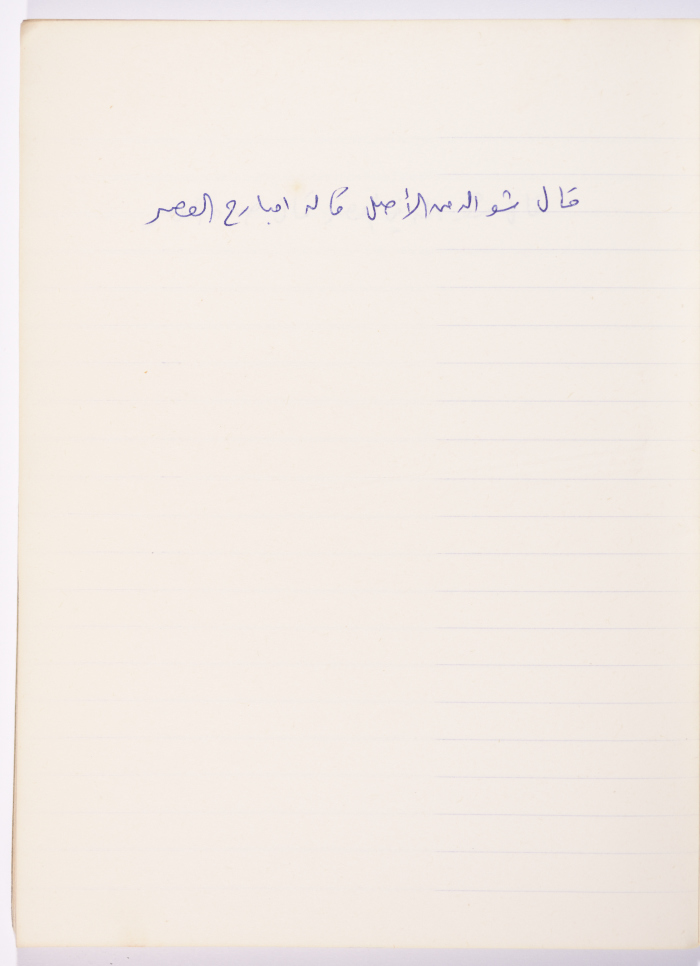 قال شو اله من الأصل قاله امبارح العصر